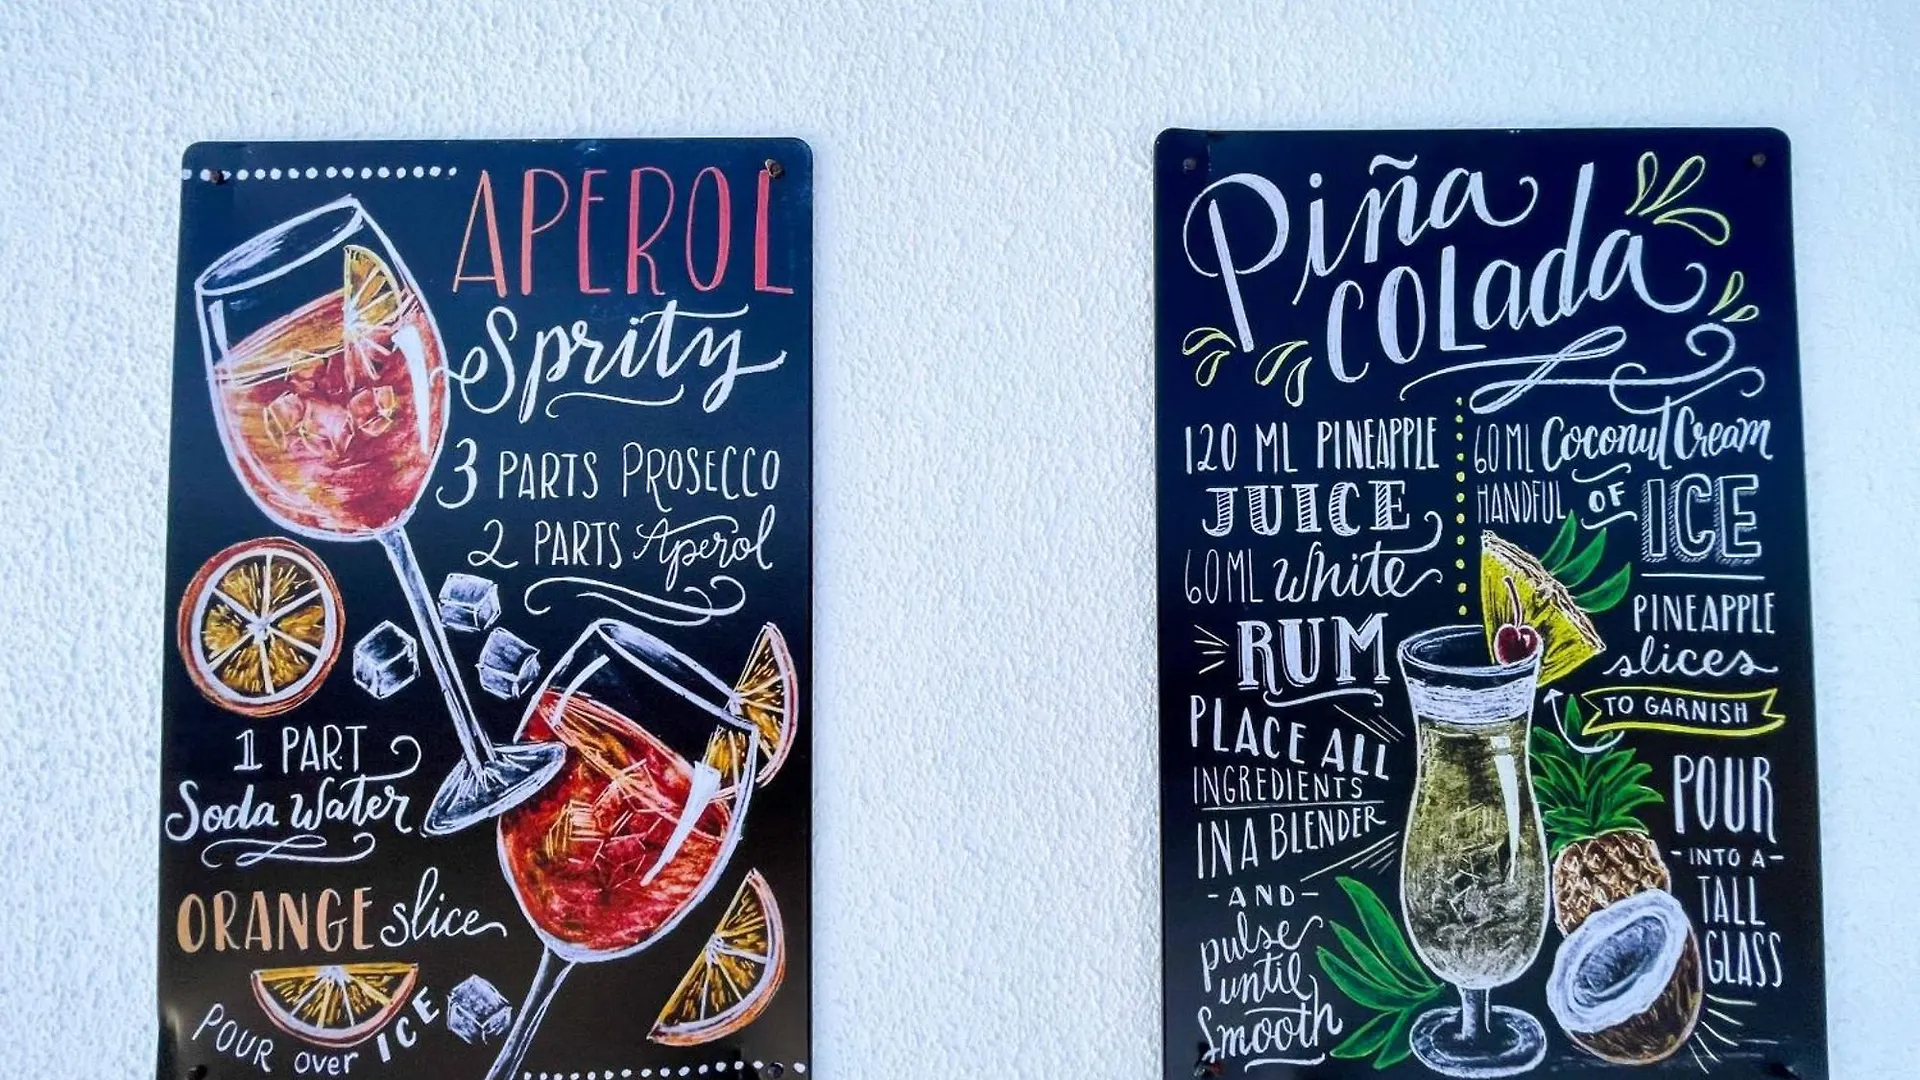 APEROL
Spritz
3 PARTS PROSECCO
2 PARTS Aperol
1 PART
Soda Water
ORANGE slice
POUR over ICE
Piña
COLada
120 ML PINEAPPLE
JUICE
60 ML White
RUM
PLACE ALL
INGREDIENTS
IN A BLENDER
-AND-
pulse
until
Smooth
60 ML Coconut Cream
HANDFUL OF ICE
PINEAPPLE
slices
TO GARNISH
POUR
-INTO A-
TALL
GLASS